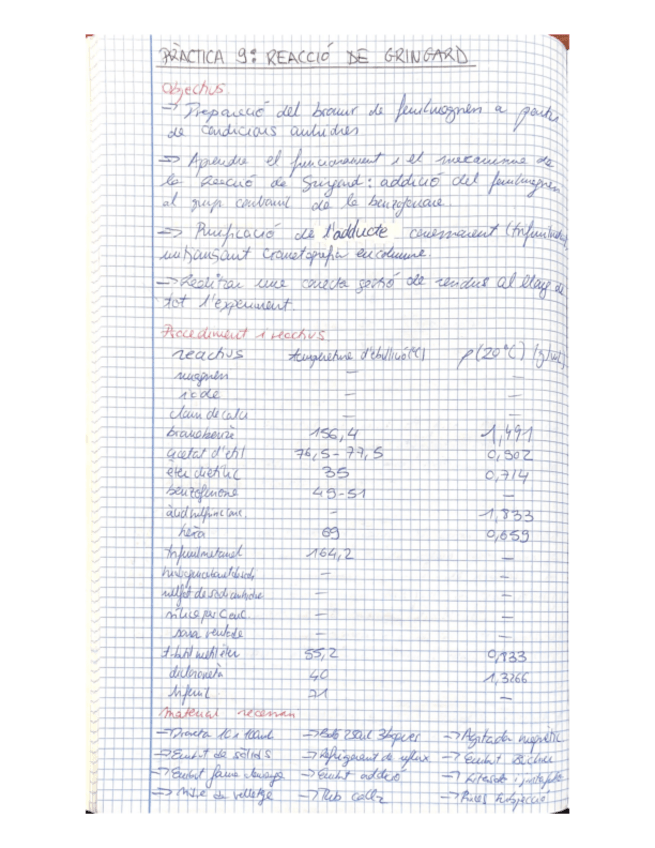 PRÀCTICA 9: REACCIÓ DE GRINGARD
Objectius
→ Preparació del bromur de fenilmagnesi a partir
de condicions anhidres
⇒ Aprendre el funcionament i el mecanisme de
la reacció de Gringard: addició del fenilmagnesi
al grup carbonil de la benzofenona.
⇒ Purificació de l'adducte
utilitzant cromatografia en columna.
→ Realitzar una correcta gestió de residus al llarg de
tot l'experiment.
Procediment i reactius
reactius temperatura d'ebullició (ºC) ρ (20ºC) (g/mL)
magnesi — —
iode — —
clorur de calci — —
bromobenzè 156,4 1,491
acetat d'etil 76,5-77,5 0,902
èter dietílic 35 0,714
benzofenona 49-51 —
àcid sulfúric conc. - 1,833
hexà 69 0,659
trifenilmetanol 164,2 —
— —
sulfat de sodi anhidre — —
sílica per C col. — —
sorra rentada — —
t-butil metil èter 55,2
diclorometà 40 1,3266
bifenil 21 —
Material necessari
→ Proveta 10 i 100mL → Baló 250mL 3 boques → Agitador magnètic
⇒ Embut de sòlids → Refrigerant de reflux → Embut Büchner
→ Embut → Embut addició → Kitasato i
⇒ → Tub CaCl2 →